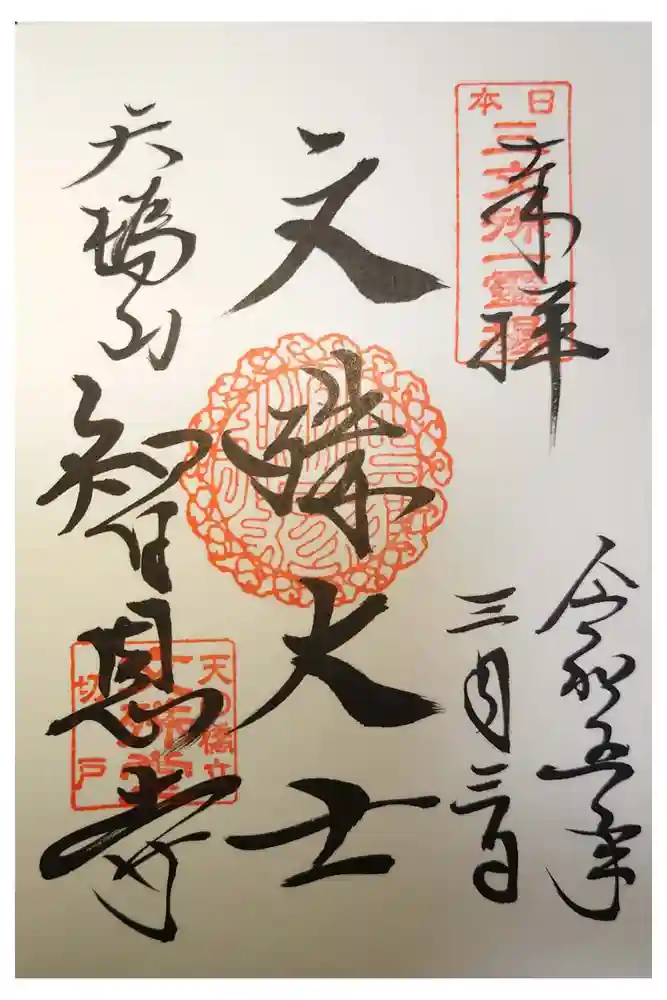 奉拝
日本
三文殊一霊場
令和五年
三月三日
文殊大士
天橋山
智恩寺
天の橋立
文殊堂
切戸